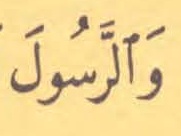 وَٱلرَّسُولَ